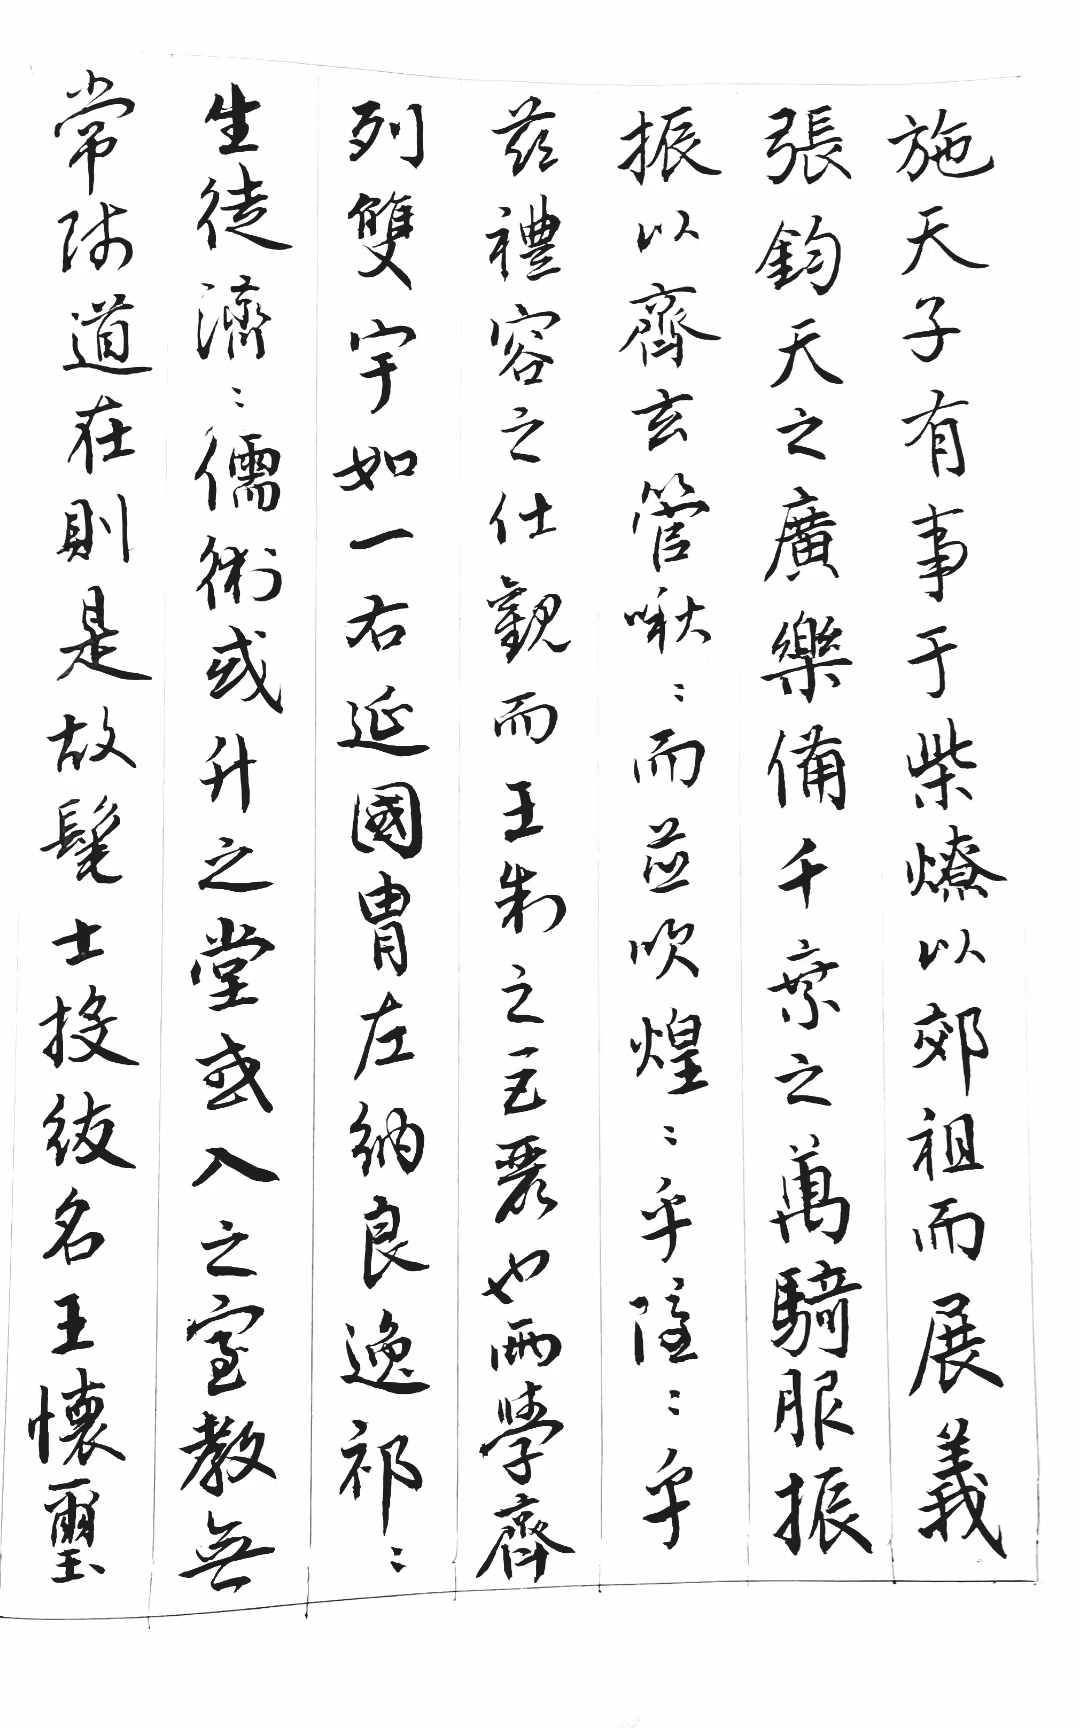 施天子有事于柴燎以郊祖而展義
張鈞天之廣樂備千乘之萬騎服振
振以齊玄管啾〻而並吹煌〻乎隱〻乎
茲禮容之壯觀而王制之巨麗也兩學齊
列雙宇如一右延國胄左納良逸祁〻
生徒濟〻儒術或升之堂或入之室教無
常師道在則是故髦士投紱名王懷璽